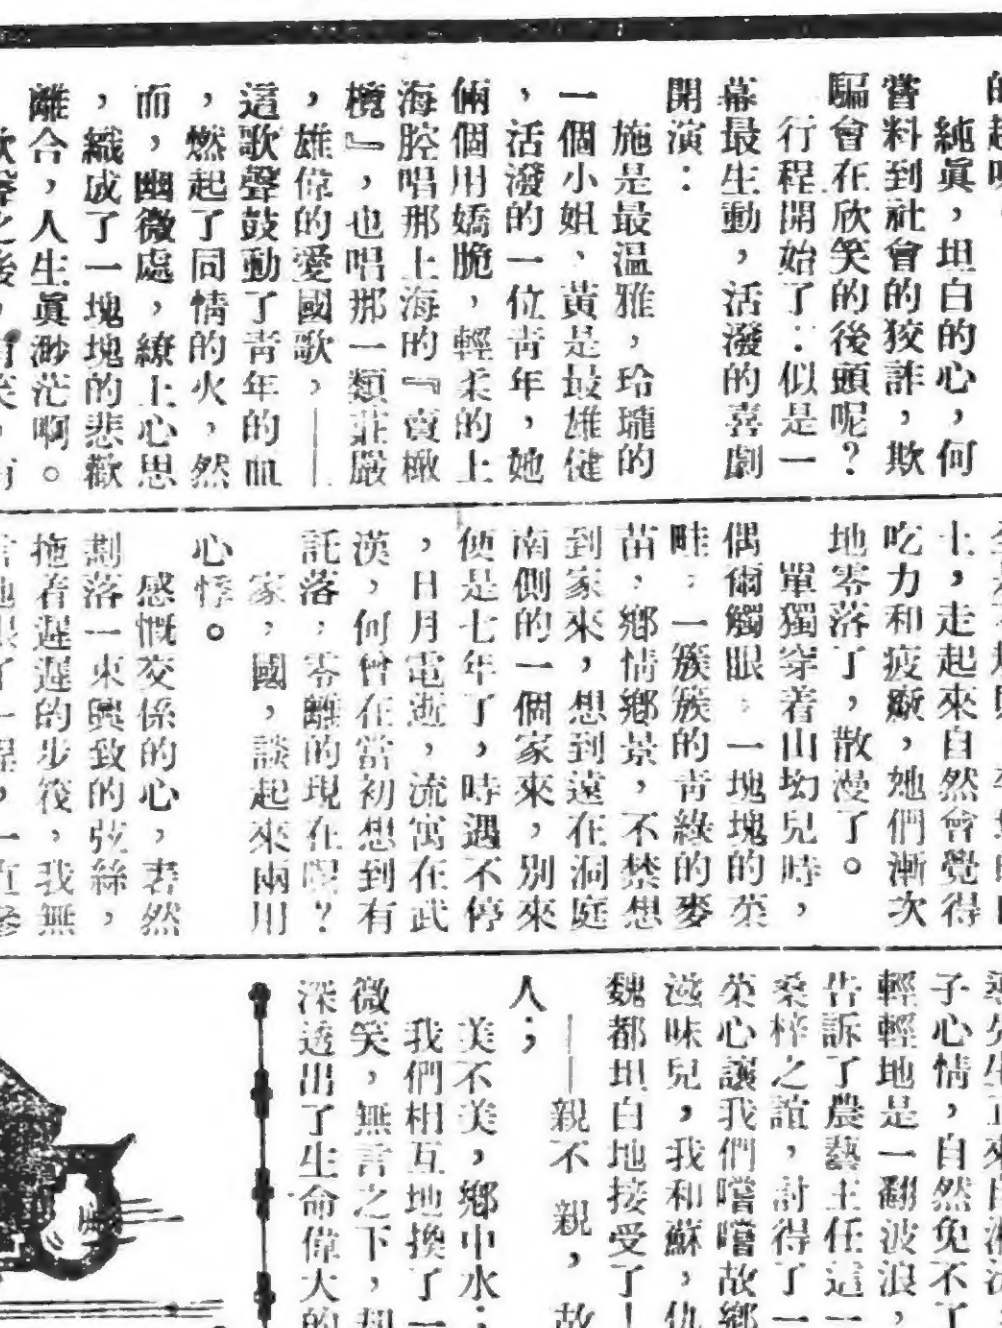 純眞，坦白的心，何
嘗料到社會的狡詐，欺
騙會在欣笑的後頭呢？
行程開始了：似是一
幕最生動，活潑的喜劇
開演：
施是最温雅，玲瓏的
一個小姐、黃是最雄健
，活潑的一位靑年，她
倆個用嬌脆，輕柔的上
海腔唱那上海的『賣橄
欖』，也唱那一類莊嚴
，雄偉的愛國歌，——
這歌聲鼓動了靑年的血
，燃起了同情的火，然
而，幽微處，繚上心思
，織成了一塊塊的悲歡
離合，人生眞渺茫啊。
土，走起來自然會覺得
吃力和疲厰，她們漸次
地零落了，散漫了。
單獨穿着山坳兒時，
偶爾觸眼，一塊塊的菜
畦，一簇簇的靑綠的麥
苗，鄉情鄉景，不禁想
到家來，想到遠在洞庭
南側的一個家來，別來
便是七年了，時遇不停
，日月電逝，流寓在武
漢，何曾在當初想到有
託落，零離的現在呢？
家，國，談起來兩用
心悸。
感慨交係的心，砉然
劃落一束興致的弦絲，
拖着遲遲的步筏，我無
子心情，自然免不了
輕輕地是一翻波浪，
告訴了農藝主任這一
桑梓之誼，討得了一
菜心讓我們嚐嚐故鄉
滋味兒，我和蘇，仇
魏都坦白地接受了！
——親不親，故
人；
美不美，鄉中水；
我們相互地換了一
微笑，無言之下，却
深透出了生命偉大的